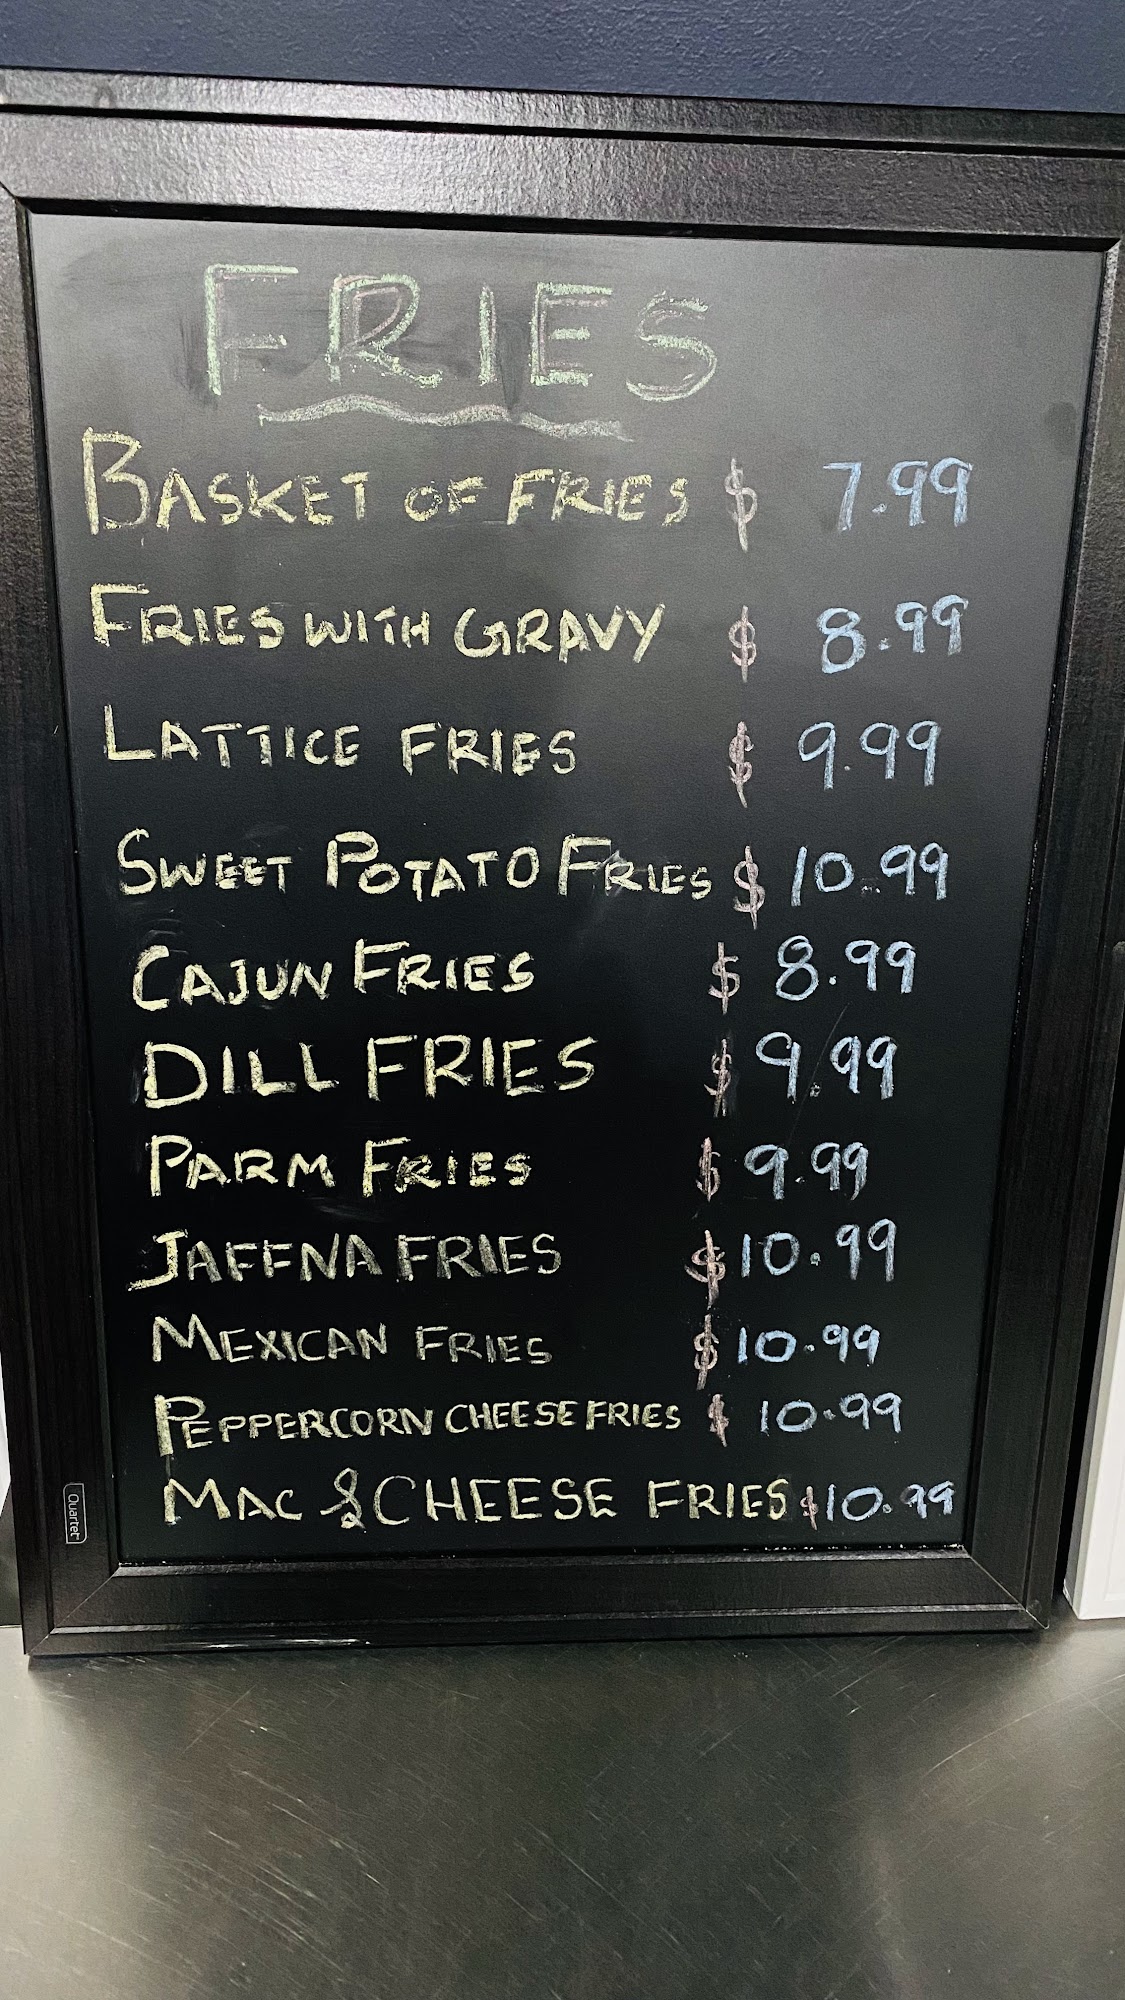 FRIES
BASKET OF FRIES $ 7.99
FRIES WITH GRAVY $ 8.99
LATTICE FRIES $ 9.99
SWEET POTATO FRIES $ 10.99
CAJUN FRIES $ 8.99
DILL FRIES $ 9.99
PARM FRIES $ 9.99
JAFFNA FRIES $ 10.99
MEXICAN FRIES $ 10.99
PEPPERCORN CHEESE FRIES $ 10.99
MAC & CHEESE FRIES $10.99
Quartet